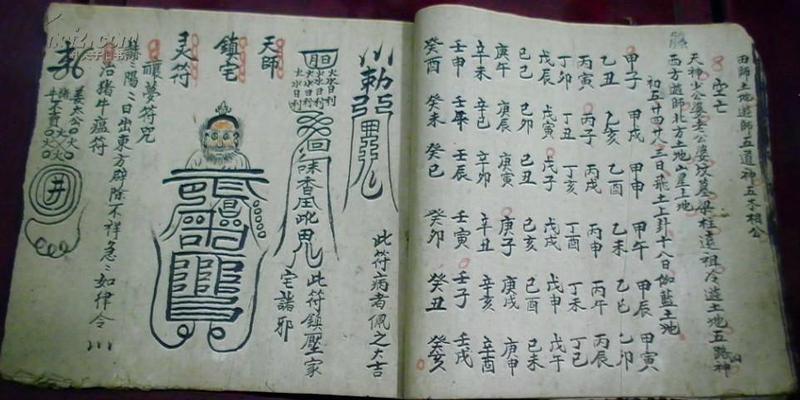 田師土地遊師五道神五木相公
空亡
天神少公婆老公婆坟墓梁柱遠祖冷遊土地五路神
西方遊師北方土地山星土地
初五廿四廿八三日飛土上卦十八日伽藍土地
甲子 甲戌 甲申 甲午 甲辰 甲寅
乙丑 乙亥 乙酉 乙未 乙巳 乙卯
丙寅 丙子 丙戌 丙申 丙午 丙辰
丁卯 丁丑 丁亥 丁酉 丁未 丁巳
戊辰 戊寅 戊子 戊戌 戊申 戊午
己巳 己卯 己丑 己亥 己酉 己未
庚午 庚辰 庚寅 庚子 庚戌 庚申
辛未 辛巳 辛卯 辛丑 辛亥 辛酉
壬申 壬午 壬辰 壬寅 壬子 壬戌
癸酉 癸未 癸巳 癸卯 癸丑 癸亥
此符病者佩之大吉
此符鎮壓家
宅諸邪
天師
鎮宅
灵符
禳夢符咒
赫陽日出東方辟除不祥急〻如律令
治猪牛瘟符
姜太公